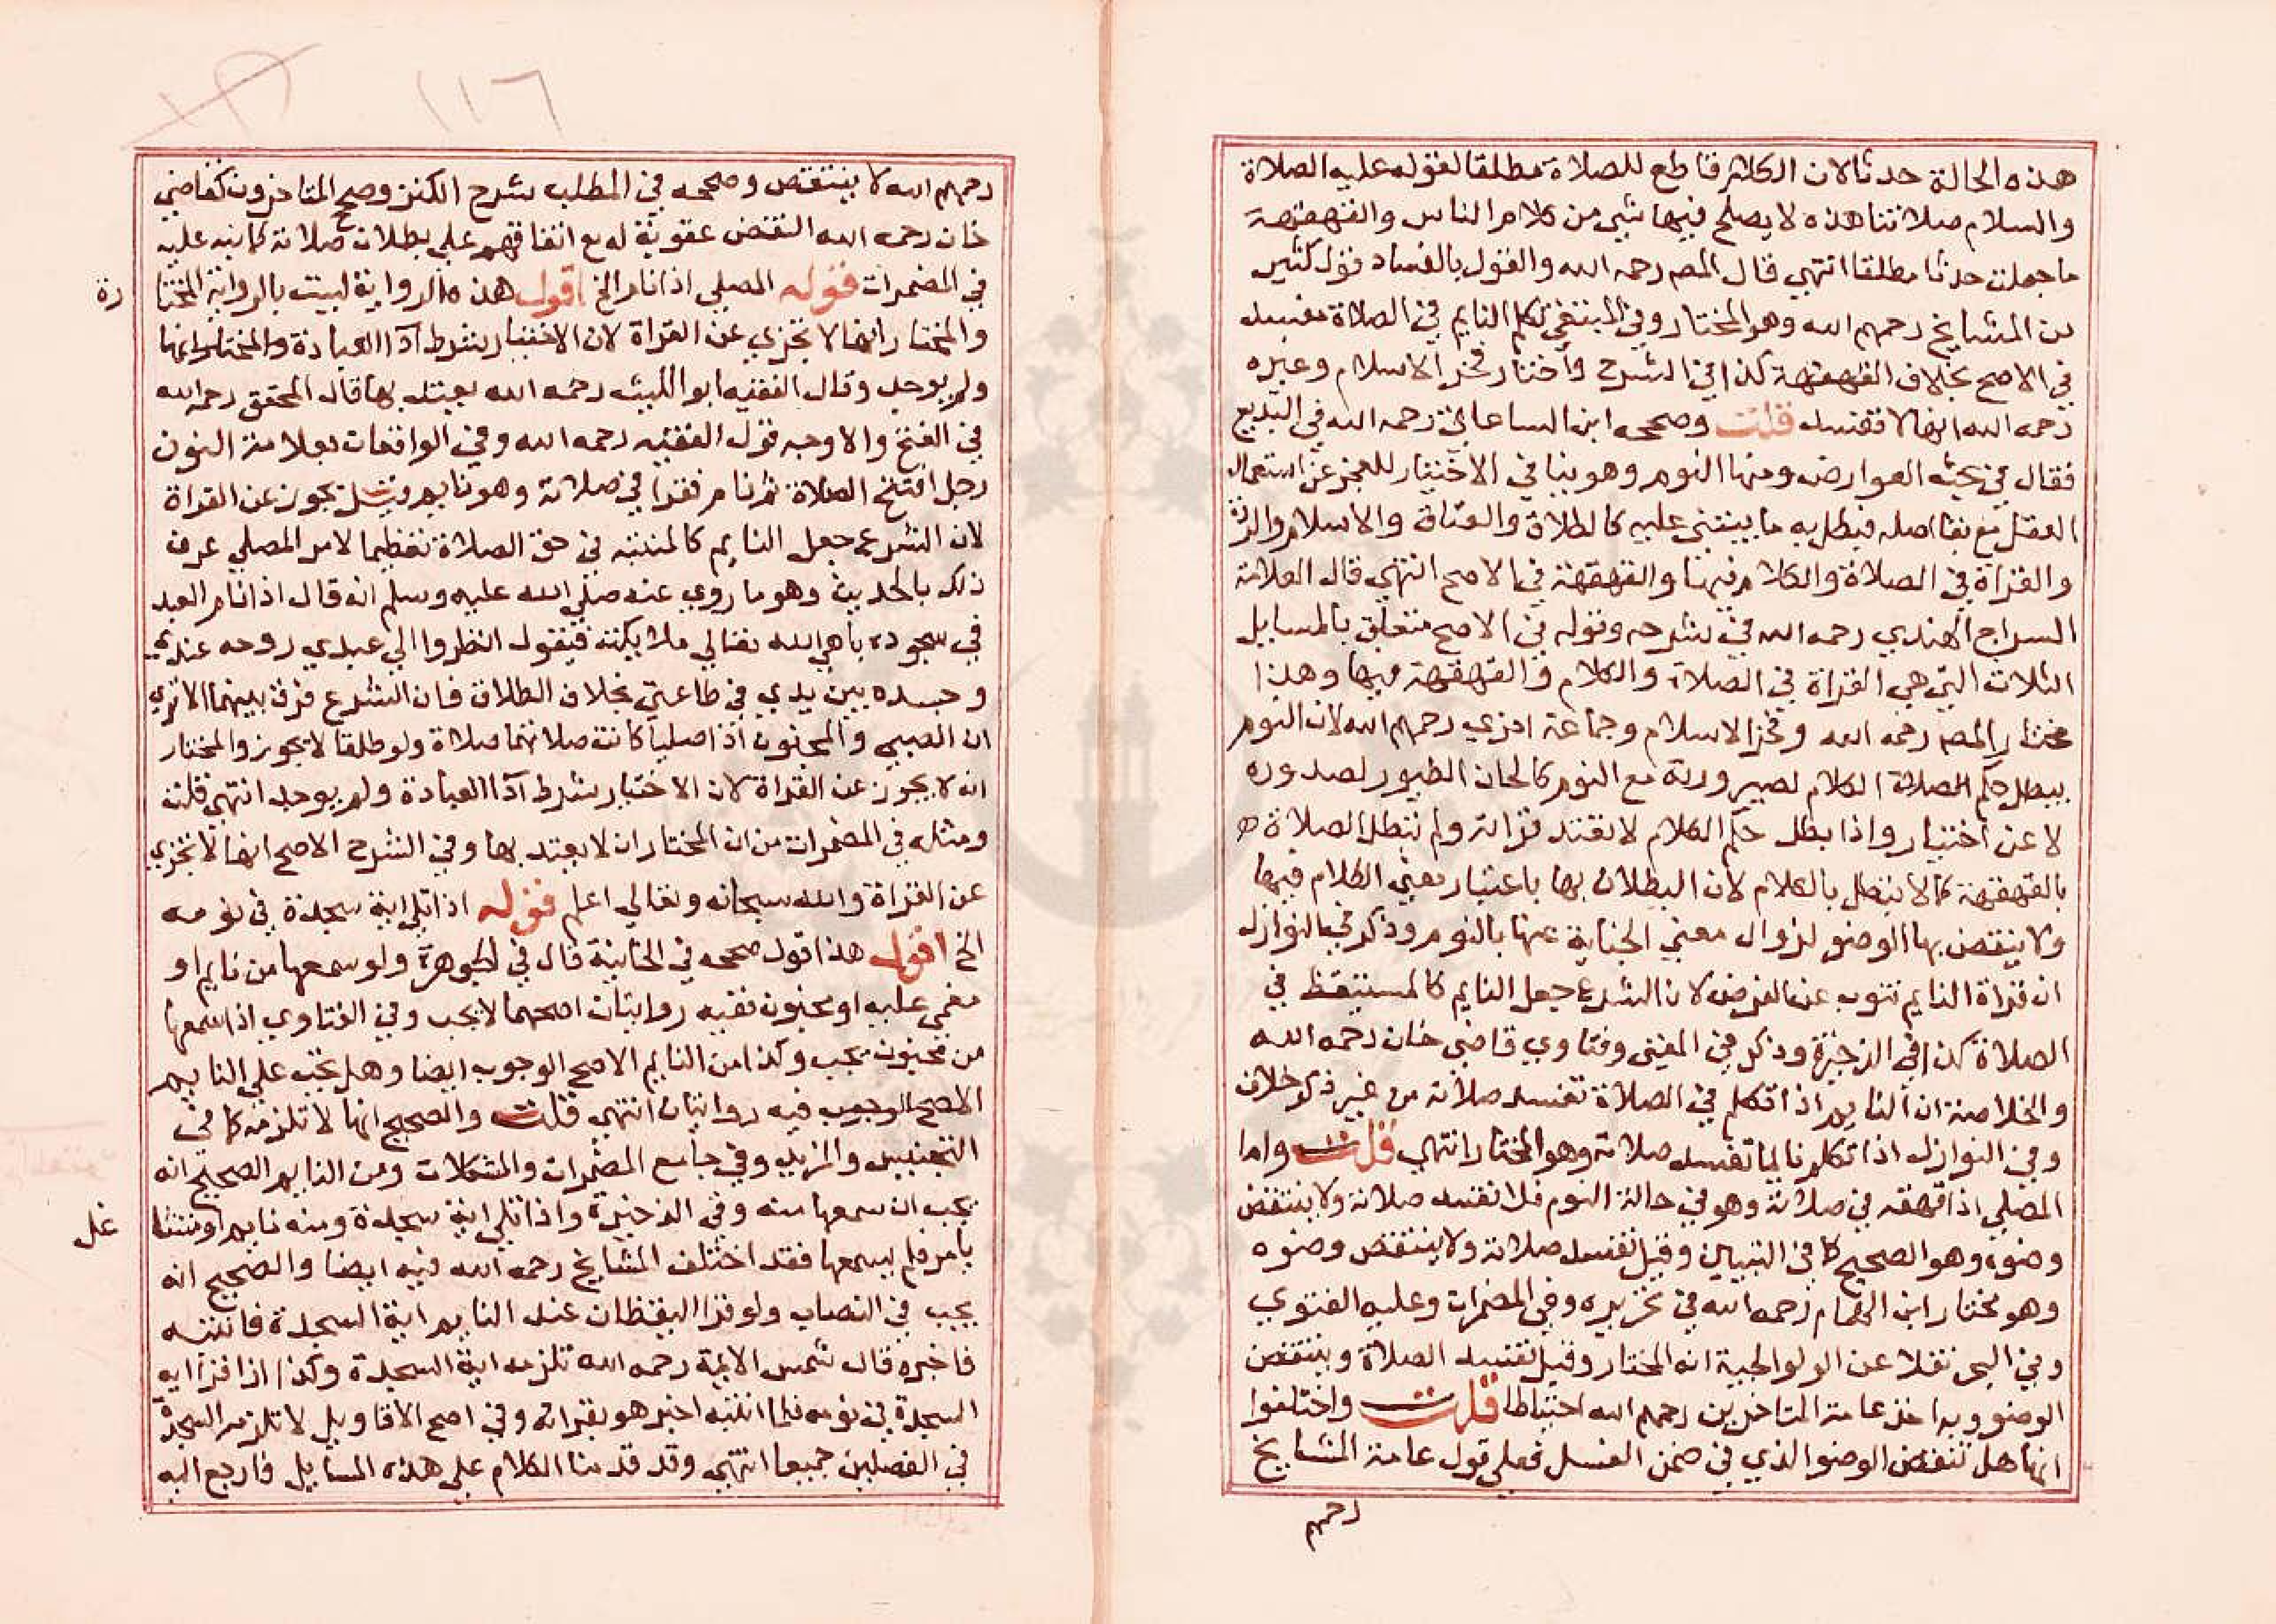 هذه الحالة حدثا لان الكلام قاطع للصلاة مطلقا لقوله عليه الصلاة
والسلام صلاتنا هذه لا يصلح فيها شي من كلام الناس والقهقهة
ما جعلت حدثا مطلقا انتهى قال المصر رحمه الله والقول بالفساد قول كثير
من المشايخ رحمهم الله وهو المختار وفي المبتغى تكلم النايم في الصلاة مفسد
في الاصح بخلاف القهقهة كذا في الشرح واختار فخر الاسلام وغيره
رحمه الله انها لا تفسد قلت وصححه ابن الساعاتي رحمه الله في البديع
فقال في بحث العوارض ومنها النوم وهو ينافي الاختيار للعجز عن استعمال
العقل مع بقا اصله فبطل به ما يبتني عليه كالطلاق والعتاق والاسلام والردة
والقراة في الصلاة والكلام فيها والقهقهة في الاصح انتهى قال العلامة
السراج الهندي رحمه الله في شرحه وقوله في الاصح متعلق بالمسايل
الثلاث التي هي القراة في الصلاة والكلام والقهقهة فيها وهذا
مختار المصر رحمه الله وفخر الاسلام وجماعة اخري رحمهم الله لان النوم
يبطل حكم الصلاة الكلام لصيرورته مع النوم كالحان الطيور لصدوره
لا عن اختيار واذا بطل حكم الكلام لا تعتد قراته ولم تبطل الصلاة
بالقهقهة كما لا تبطل بالكلام لان البطلان بها باعتبار معنى الكلام فيها
ولا ينتقض بها الوضو لزوال معنى الجناية عنها بالنوم وذكر في النوازل
ان قراة النايم تنوب عن الفرض لان الشرع جعل النايم كالمستيقظ في
الصلاة كذا في الذخيرة وذكر في المغني وفتاوي قاضي خان رحمه الله
والخلاصة ان النايم اذا تكلم في الصلاة تفسد صلاته من غير ذكر خلاف
وفي النوازل اذا تكلم نايما تفسد صلاته وهو المختار انتهى قلت واما
المصلي اذا قهقه في صلاته وهو في حالة النوم فلا تفسد صلاته ولا ينتقض
وضوه وهو الصحيح كما في التبيين وقيل تفسد صلاته ولا ينتقض وضوه
وهو مختار ابن الهمام رحمه الله في تحريره وفي المضمرات وعليه الفتوي
وفي البحر نقلا عن الولوالجية انه المختار وقيل تفسد الصلاة وينتقض
الوضو وبه اخذ عامة المتاخرين رحمهم الله احتياطا قلت واختلفوا
انها هل تنقض الوضو الذي في ضمن الغسل فعلى قول عامة المشايخ
رحمهم
١١٦
رحمهم الله لا ينتقض وصححه في المطلب شرح الكنز وصحح المتاخرون كقاضي
خان رحمه الله النقض عقوبة له مع اتفاقهم على بطلان صلاته كما نبه عليه
في المضمرات قوله المصلي اذا نام الخ اقول هذه الرواية ليست بالرواية المختا
رة
والمختار انها لا تجزي عن القراة لان الاختيار شرط ادا العبادة والمختار انها
ولم يوجد وقال الفقيه ابو الليث رحمه الله يعتد بها قال المحقق رحمه الله
في الفتح والاوجه قول الفقيه رحمه الله وفي الواقعات بعلامة النون
رجل افتتح الصلاة ثم نام فقرا في صلاته وهو نايم قيل تجوز عن القراة
لان الشرع جعل النايم كالمنتبه في حق الصلاة تعظيما لامر المصلي عرف
ذلك بالحديث وهو ما روي عنه صلى الله عليه وسلم انه قال اذا نام العبد
في سجوده باهى الله تعالي ملايكته فيقول انظروا الي عبدي روحه عندي
وجسده بين يدي في طاعتي بخلاف الطلاق فان الشرع فرق بينهما الا تري
ان الصبي والمجنون اذا صليا كانت صلاتهما صلاة ولو طلقا لا يجوز والمختار
انه لا يجوز عن القراة لان الاختيار شرط ادا العبادة ولم يوجد انتهى قلت
ومثله في المضمرات من ان المختار ان لا يعتد بها وفي الشرح الاصح انها لا تجزي
عن القراة والله سبحانه وتعالي اعلم قوله اذا تلي اية سجدة في نومه
الخ اقول هذا قول صححه في الخانية قال في الجوهرة ولو سمعها من نايم او
مغمى عليه او مجنون ففيه روايتان اصحهما لا يجب وفي الفتاوي اذا سمعها
من مجنون يجب وكذا من النايم الاصح الوجوب ايضا وهل تجب على النايم
الاصح الوجوب فيه روايتان انتهى قلت والصحيح انها لا تلزمه كما في
التجنيس والمزيد وفي جامع المضمرات والمشكلات ومن النايم الصحيح انه
يجب ان سمعها منه وفي الذخيرة واذا تلي اية سجدة ومنه نايم او متشا
غل
يا مر فلم يسمعها فقد اختلف المشايخ رحمه الله فيه ايضا والصحيح انه
يجب في النصاب ولو قرا اليقظان عند النايم اية السجدة فانتبه
فاخبره قال شمس الايمة رحمه الله تلزمه اية السجدة وكذا اذا قرا اية
السجدة في نومه فلما انتبه اخبر هو بقراته وفي اصح الاقاويل لا تلزم السجدة
في الفصلين جميعا انتهى وقد قدمنا الكلام على هذه المسايل فارجع اليه